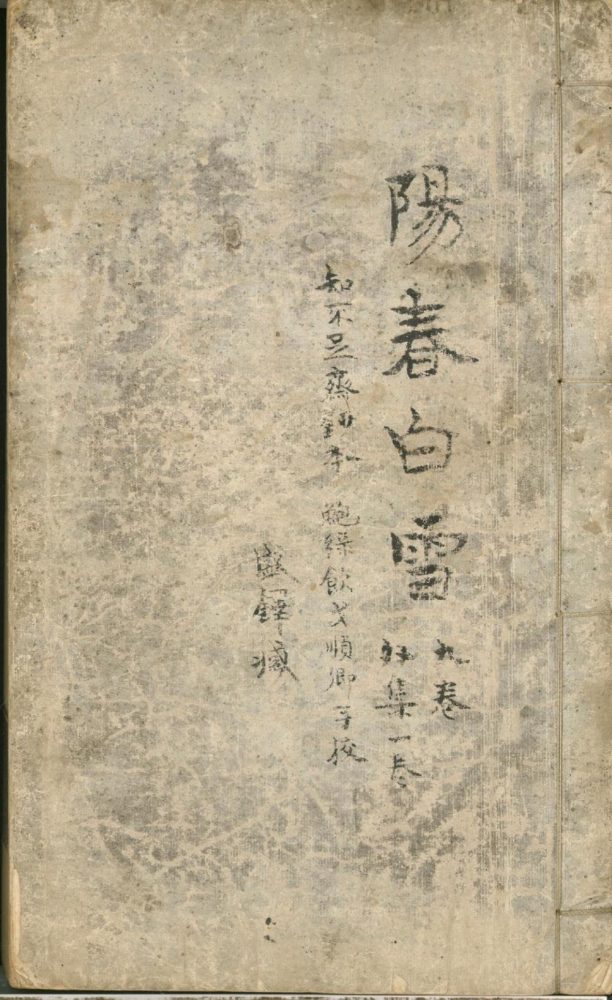 陽春白雪
九卷
外集一卷
知不足齋鈔本 鮑綠飲戈順卿手校
盛鐸藏